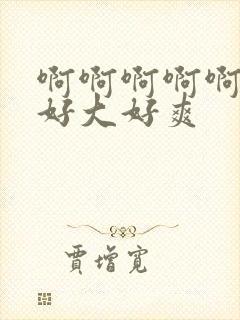 啊啊啊啊啊
好大好爽
贾增宽